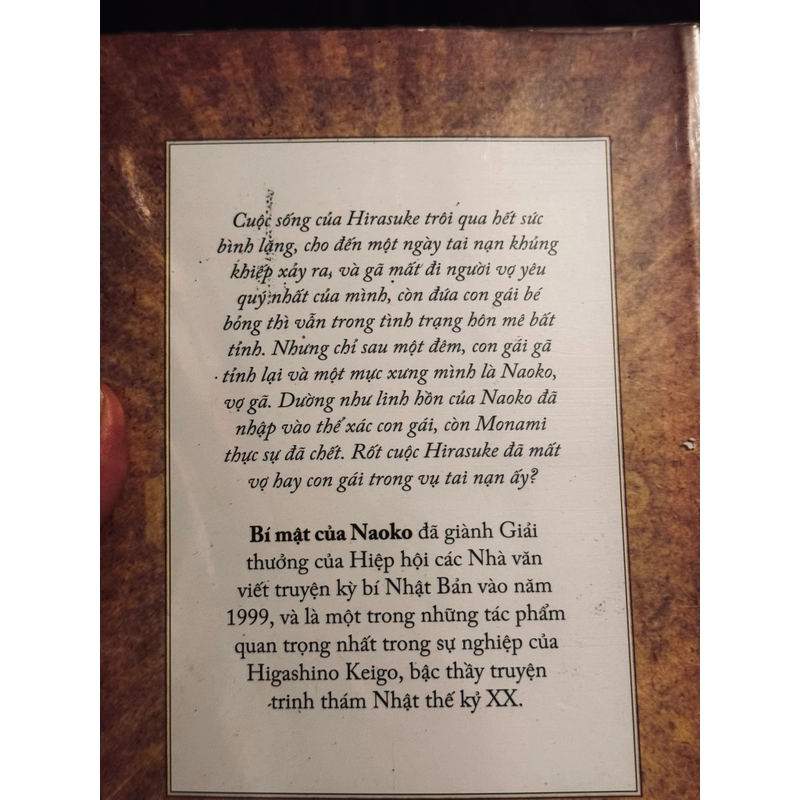 Cuộc sống của Hirasuke trôi qua hết sức
bình lặng, cho đến một ngày tai nạn khủng
khiếp xảy ra, và gã mất đi người vợ yêu
quý nhất của mình, còn đứa con gái bé
bỏng thì vẫn trong tình trạng hôn mê bất
tỉnh. Nhưng chỉ sau một đêm, con gái gã
tỉnh lại và một mực xưng mình là Naoko,
vợ gã. Dường như linh hồn của Naoko đã
nhập vào thể xác con gái, còn Monami
thực sự đã chết. Rốt cuộc Hirasuke đã mất
vợ hay con gái trong vụ tai nạn ấy?
Bí mật của Naoko đã giành Giải
thưởng của Hiệp hội các Nhà văn
viết truyện kỳ bí Nhật Bản vào năm
1999, và là một trong những tác phẩm
quan trọng nhất trong sự nghiệp của
Higashino Keigo, bậc thầy truyện
trinh thám Nhật thế kỷ XX.